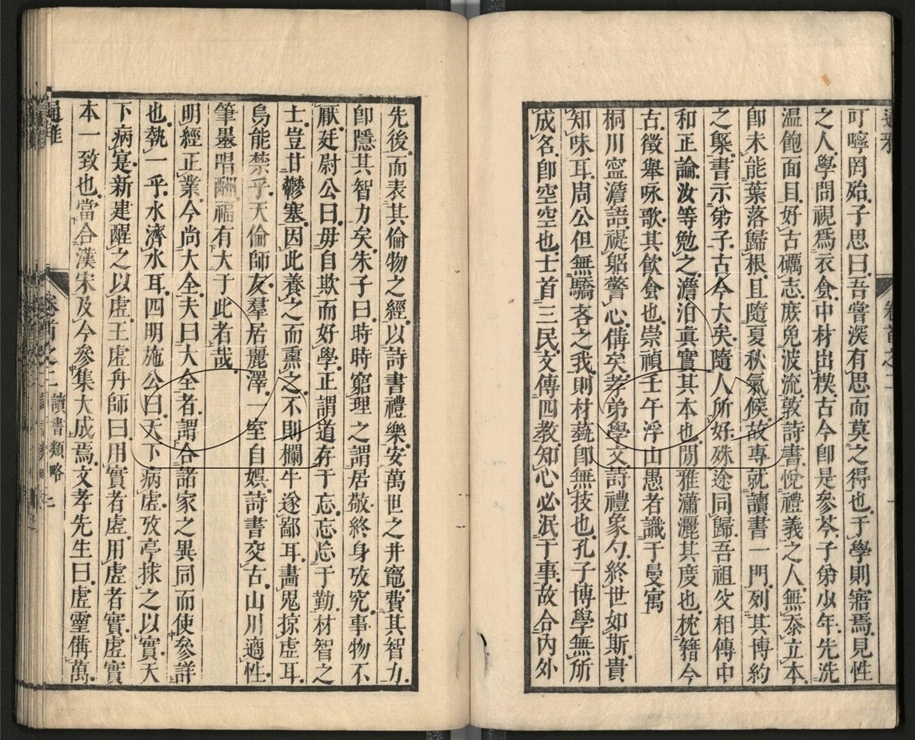 叮嚀罔殆子思曰吾嘗深有思而莫之得也于學則寤焉見性
之人學問視爲衣食中材出楔古今卽是參苓子弟少年先洗
溫飽面目好古礪志庻免波流敦詩書悅禮義之人無忝立本
卽未能葉落歸根且隨夏秋氣候故專就讀書一門列其博約
之槩書示弟子古今大矣隨人所好殊途同歸吾祖父相傳中
和正論汝等勉之澹泊眞實其本也閒雅瀟灑其度也枕籍今
古徵舉咏歌其飮食也崇禎壬午浮山愚者識于曼寓
桐川寧澹語禔躬警心僃矣孝弟學文詩禮象勺終世如斯貴
知味耳周公但無驕吝之我則材蓺卽無技也孔子博學無所
成名卽空空也士首三民文傳四教知心必泯于事故合內外
先後而表其倫物之經以詩書禮樂安萬世之井竈費其智力
卽隱其智力矣朱子曰時時窮理之謂居敬終身攷究事物不
厭廷尉公曰毋自欺而好學正謂道在于忘忘忘于勤材智之
士豈甘鬱塞因此養之而熏之不則欄牛遂鄙耳畵鬼掠虛耳
烏能禁乎天倫師友羣居麗澤一室自娛詩書交古山川適性
筆墨唱酬福有大于此者哉
明經正業今尚大全夫曰大全者謂合諸家之異同而使參詳
也執一乎水濟水耳四明施公曰天下病虛攷亭捄之以實天
下病寔新建醒之以虛王虛舟師曰用實者虛用虛者實虛實
本一致也當合漢宋及今參集大成焉文孝先生曰虛靈僃萬
通雅
卷首之二
讀書類略